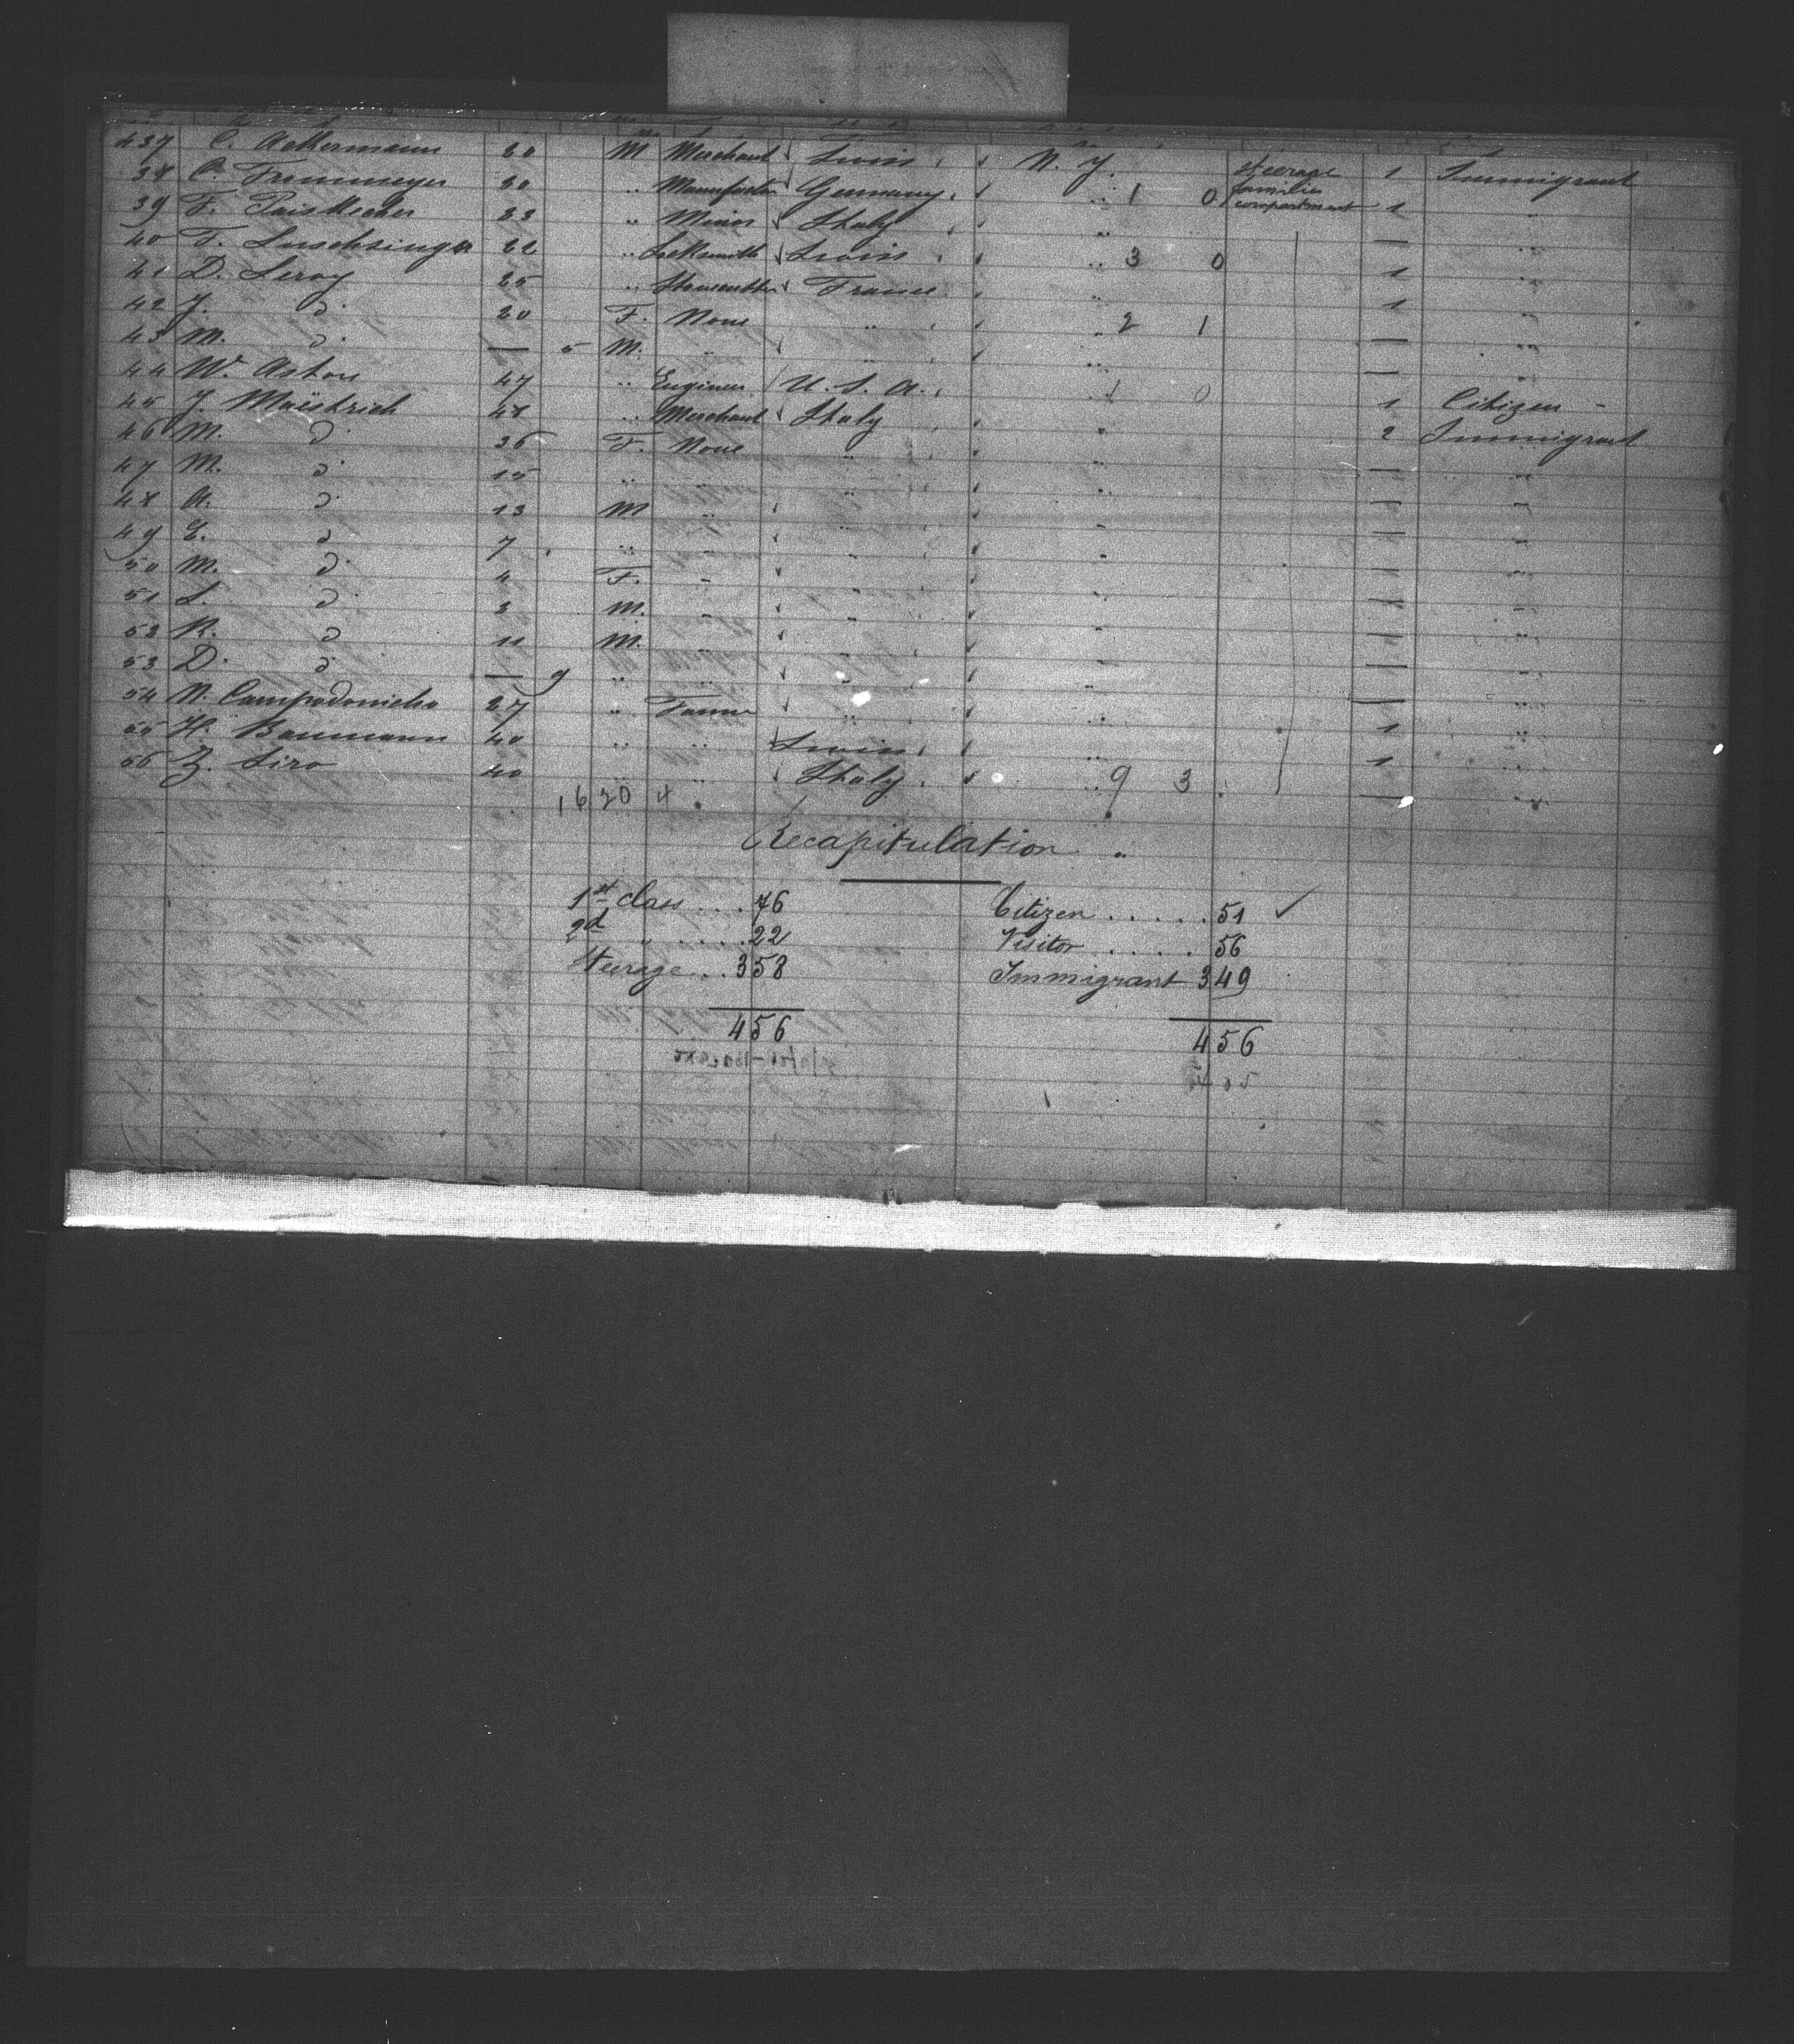 437 C. Ackermann 20 M Merchant Swiss N. Y. Steerage families compartment 1 Immigrant
38 C. Frommeyer 30 " Germany " 1 0 1 "
39 F. 23 " Miner Italy " — "
40 F. Luschsinger 22 " Locksmith Swiss " 3 0 1 "
41 D. Leroy 25 " Stonecutter France " 1 "
42 J. d° 20 F. None " " 2 1 — "
43 M. d° — 5 M. " " " — "
44 W. Aston 47 " Engineer U. S. A. " 1 0 1 Citizen -
45 J. Maïstrich 48 " Merchant Italy " 2 Immigrant
46 M. d° 36 F. None " " — "
47 M. d° 15 " " " " — "
48 A. d° 13 M " " " — "
49 E. d° 7 " " " " — "
50 M. d° 4 F. " " " — "
51 L. d° 2 M. " " " — "
52 R. d° 11 M. " " " — "
53 D. d° — 9 " " " " — "
54 N. Campodonicho 27 " Farmer " " 1 "
55 H. Baumann 40 " " Swiss " 1 "
56 Z. Siro 40 " " Italy " 9 3 — "
1620 4
Recapitulation
1st class .... 76 Citizen ..... 51 ✓
2d " ..... 22 Visitor ..... 56
Steerage ... 358 Immigrant 349
456 456
405